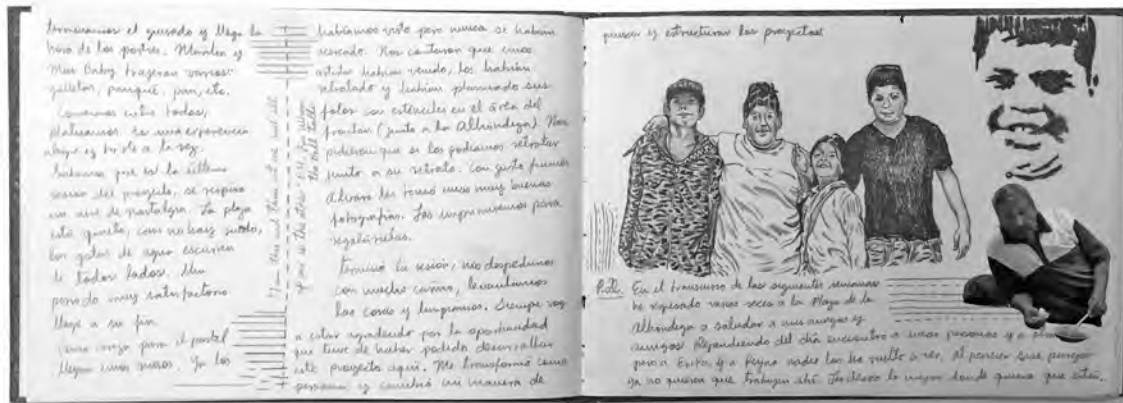 terminamos el guisado y llega la
hora de los postres. Marilen y
Miss Baby trajeron varias
galletas, panqué, pan, etc.
Comemos entre todas,
platicamos. Es una experiencia
alegre y triste a la vez.
Sabemos que es la última
sesión del proyecto, se respira
un aire de nostalgia. La plaza
está quieta, casi no hay ruido,
las gotas de agua escurren
de todos lados. Un
periodo muy satisfactorio
llega a su fin
como cereza para el pastel
llegan unos. Ya los
you is the
the Bell Tolls
habíamos visto pero nunca se habían
acercado. Nos contaron que unos
artistas habían venido, los habían
retratado y habían plasmado sus
fotos con esténciles en el área del
frontón (junto a la Alhóndiga). Nos
pidieron que si los podíamos retratar
junto a su retrato. Con gusto fuimos
Álvaro les tomó unas muy buenas
fotografías. Las imprimiremos para
regalárselas.
Terminó la sesión, nos despedimos
con mucho cariño, levantamos
las cosas y limpiamos. Siempre voy
a estar agradecido por la oportunidad
que tuve de haber podido desarrollar
este proyecto aquí. Me transformó como
persona y cambió mi manera de
pensar y estructurar los proyectos.
P.D. En el transcurso de las siguientes semanas
he regresado varias veces a la Plaza de la
Alhóndiga a saludar a mis amigas y
amigos. Dependiendo del día encuentro a unas personas y a otras
pero a Erika y a nadie las ha vuelto a ver, al parecer sus parejas
ya no quieren que trabajen ahí. Les deseo lo mejor donde quiera que estén.